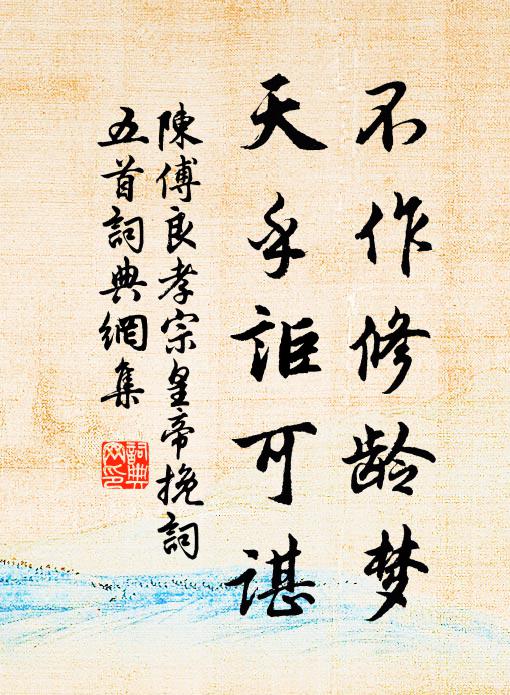 不作修龄梦
天乎詎可諶
陳傅良孝宗皇帝挽詞
五首詞典網集
詞典網印